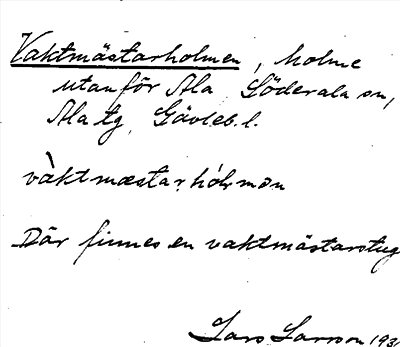 Vaktmästarholmen, holme
utanför Ala, Söderala sn,
Ala tg, Gävleb. l.
vàktmæstar,hólmən
Där finnes en vaktmästarstug
Lars Larsson 193